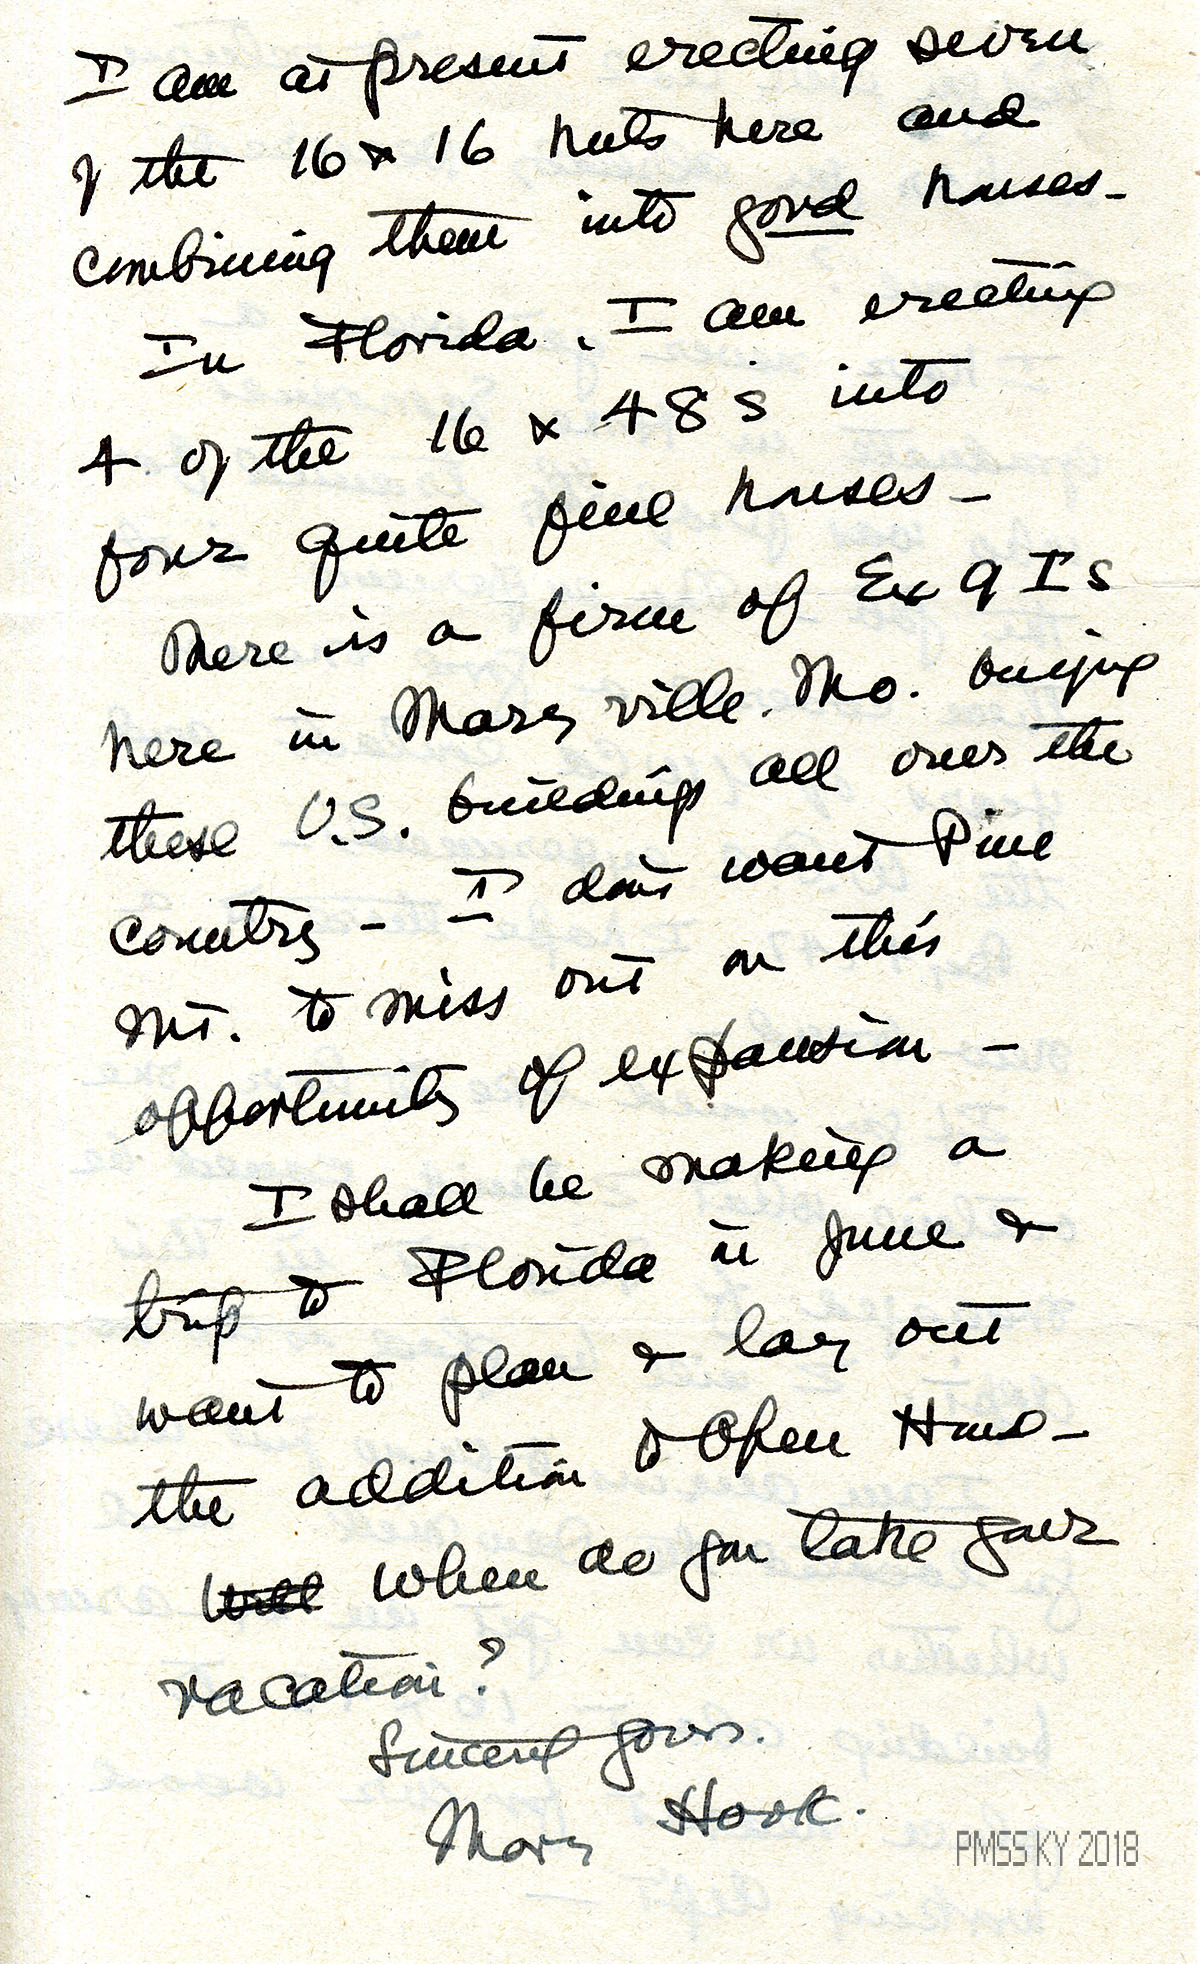 I am at present erecting seven
of the 16 x 16 huts here and
combining them into good houses -
In Florida, I am erecting
4 of the 16 x 48s into
four quite fine houses -
There is a firm of Ex G I s
here in Marysville. Mo. buying
these U.S. buildings all over the
country - I don't want Pine
Mt. to miss out on this
opportunity of expansion -
I shall be making a
trip to Florida in June &
want to plan & lay out
the addition to Open House -
Will When do you take your
vacation?
Sincerely yours.
Mary Hook.
PMSS KY 2018